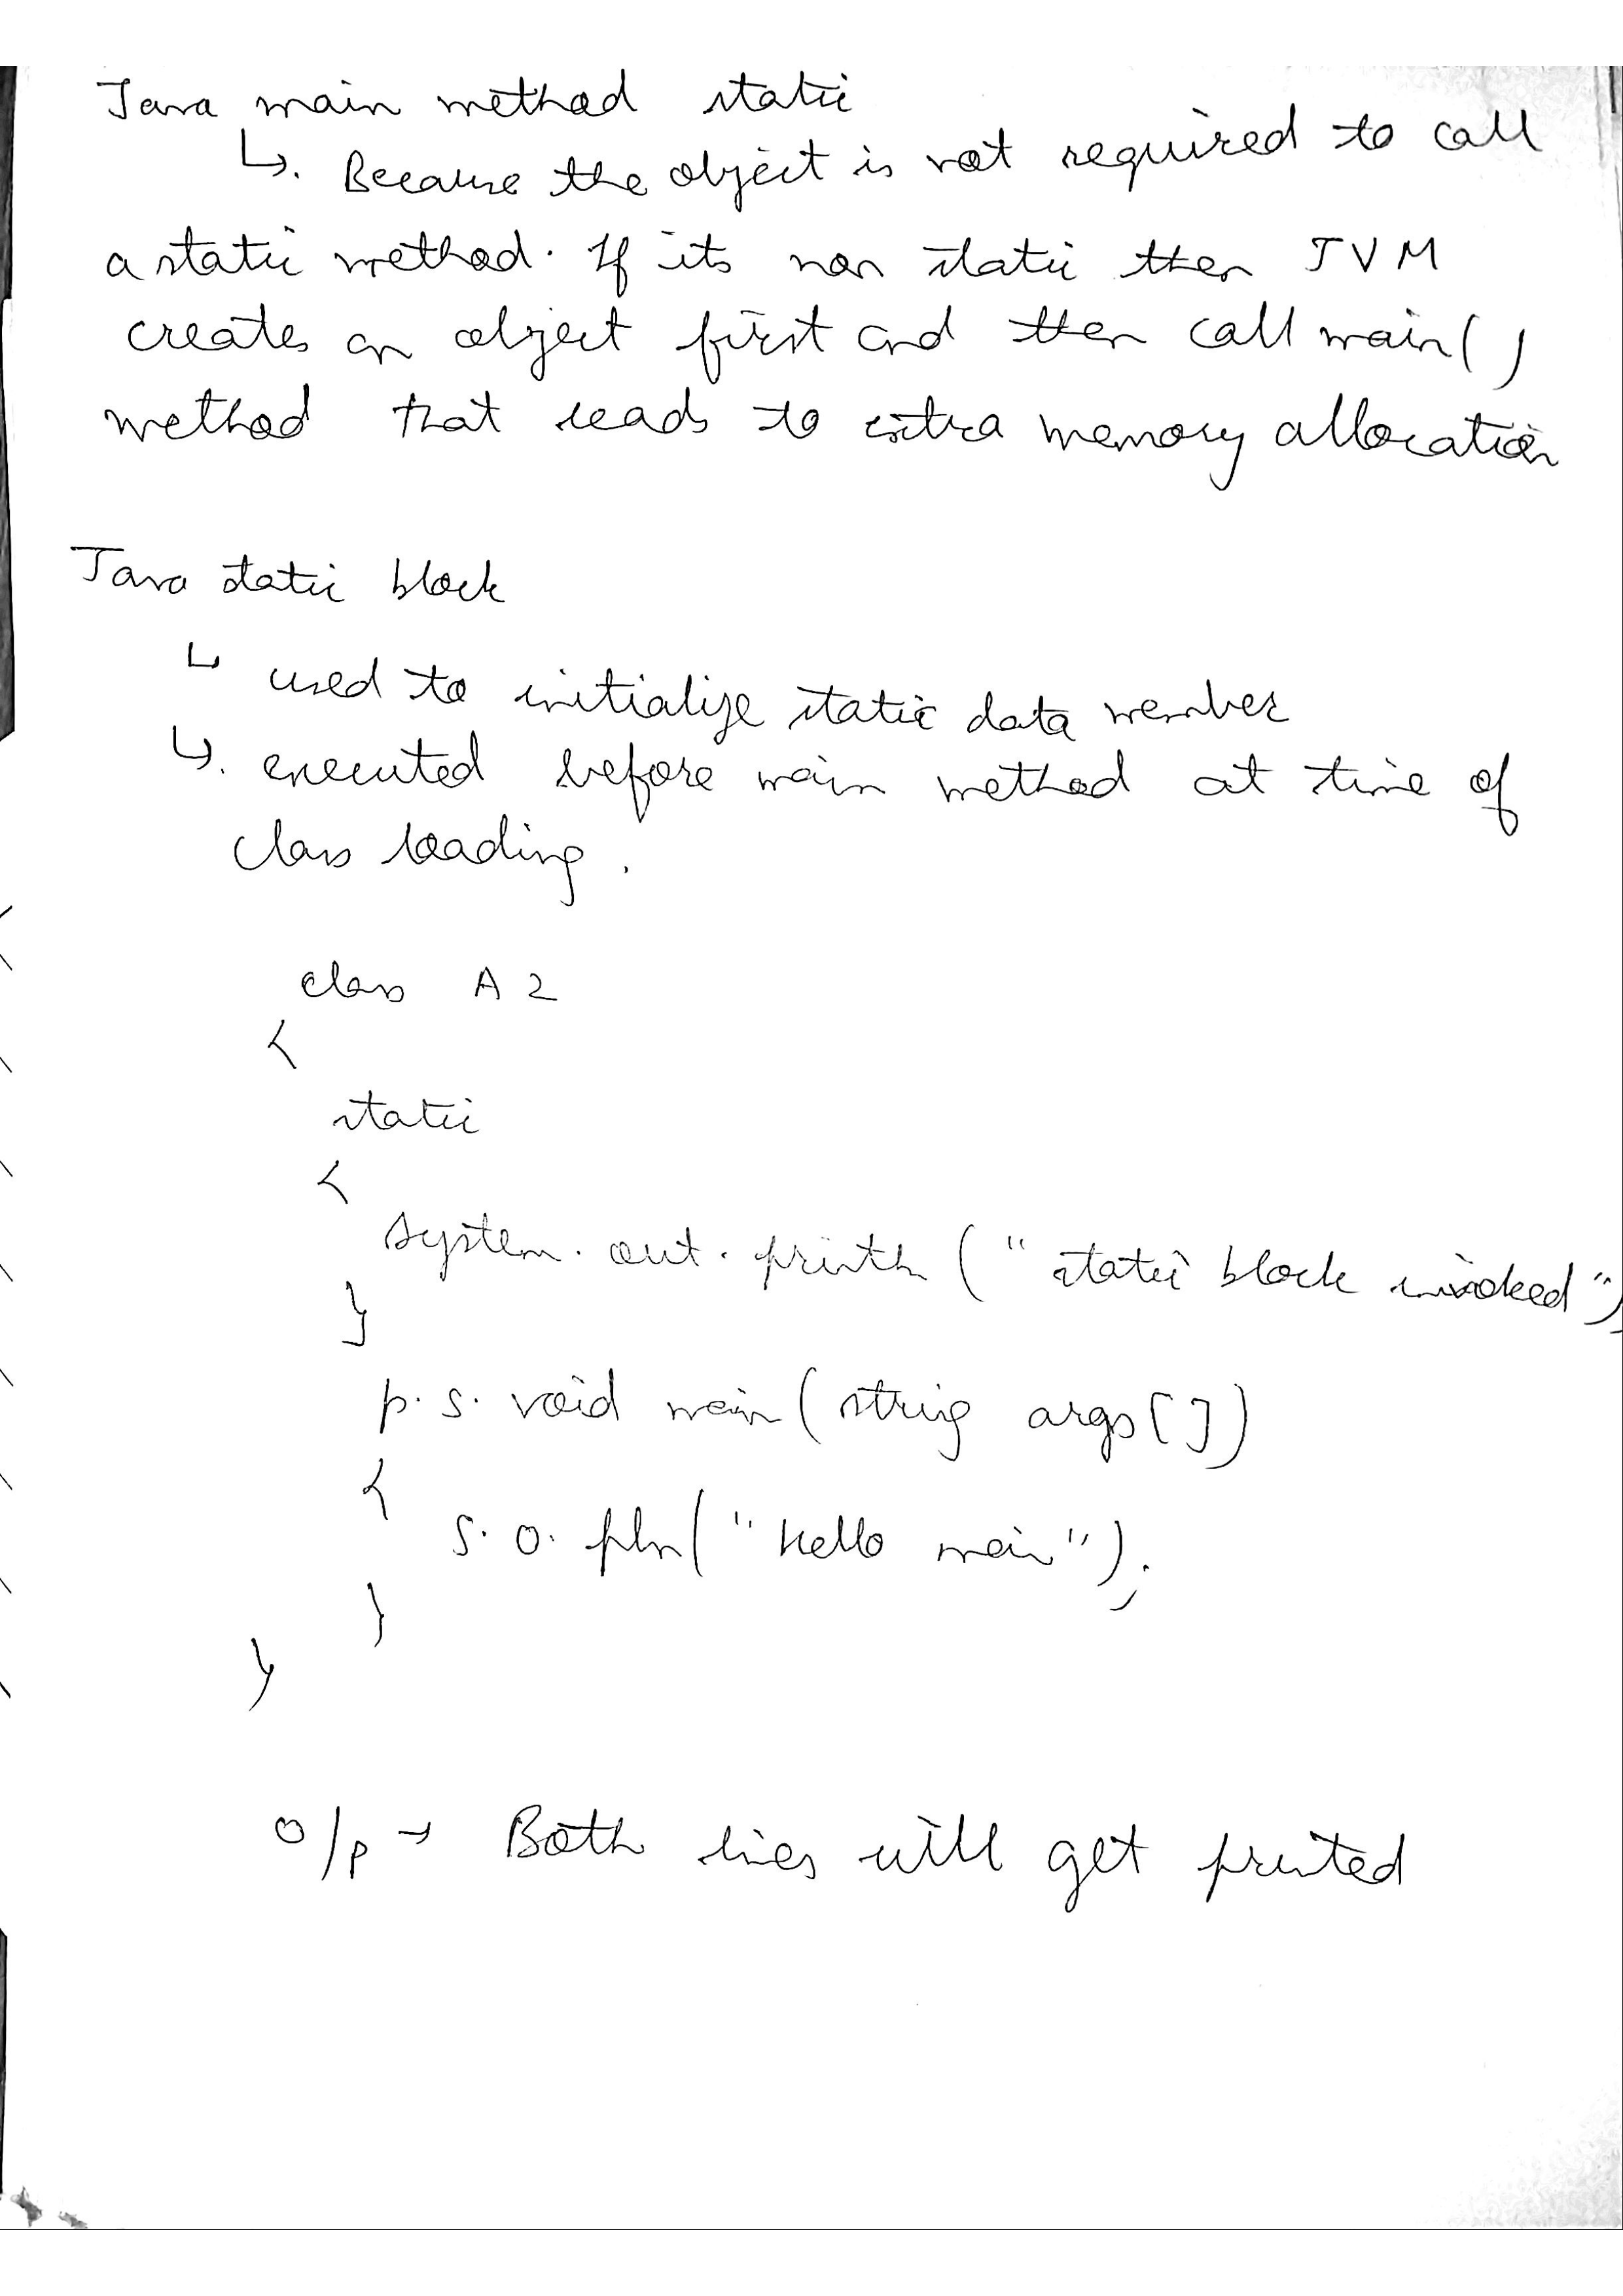 Java main method static
↳. Because the object is not required to call
a static method. If its non static then JVM
creates an object first and then call main()
method that leads to extra memory allocation
Java static block
↳ used to initialize static data member
↳. executed before main method at time of
class loading.
class A2
{
static
{
System.out.println("static block invoked");
}
p.s. void main(string args[])
{
S.o.pln("Hello main");
}
}
O/p → Both lines will get printed